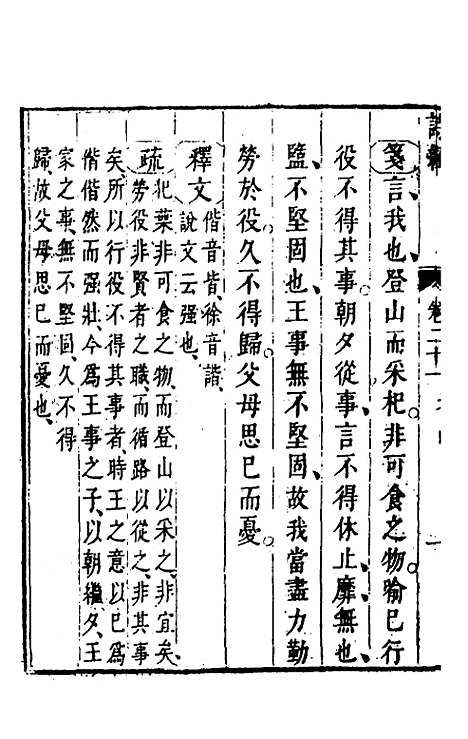 卷二十一
箋言我也、登山而采杞非可食之物。喻已行
役不得其事。朝夕從事言不得休止、靡無也、
盬不堅固也、王事無不堅固故我當盡力勤
勞於役久不得歸。父母思已而憂。
釋文偕音皆、徐音諧、
說文云强也、
疏杞葉非可食之物、而登山以采之、非宜矣、
勞役非賢者之職、而循路以從之、非其事
矣、所以行役不得其事者、時王之意以已爲
偕偕然而强壯、今爲王事之子、以朝繼夕、王
家之事、無不堅固、久不得
歸、故父母思已而憂也、